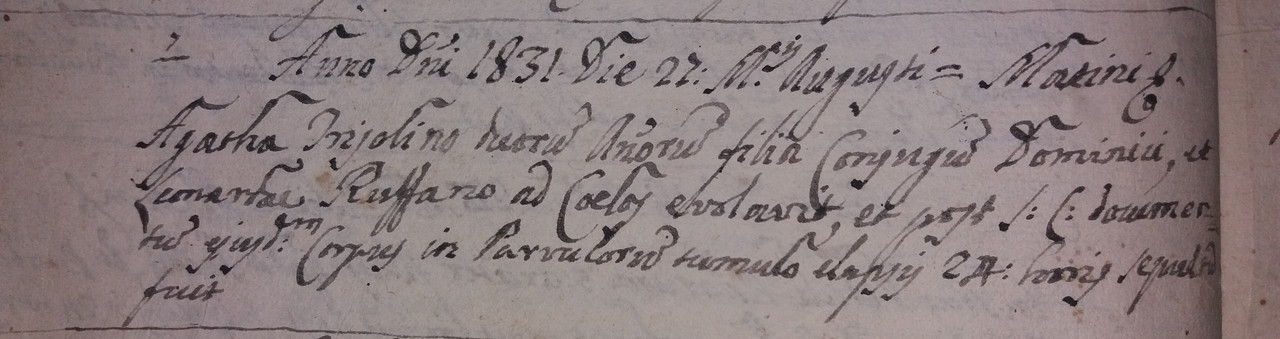 Anno Dñi 1831. Die 22: M.sij Augusti = Matini g.
Agatha Injolino duorũ Añorũ filia Conjugũ Dominici, et
Leonardae Ruffano ad Coelos evolavit, et post S: C: documen=
tũ ejusd:em Corpus in Parvulorũ tumulo elapsij 24: horis sepultũ
fuit